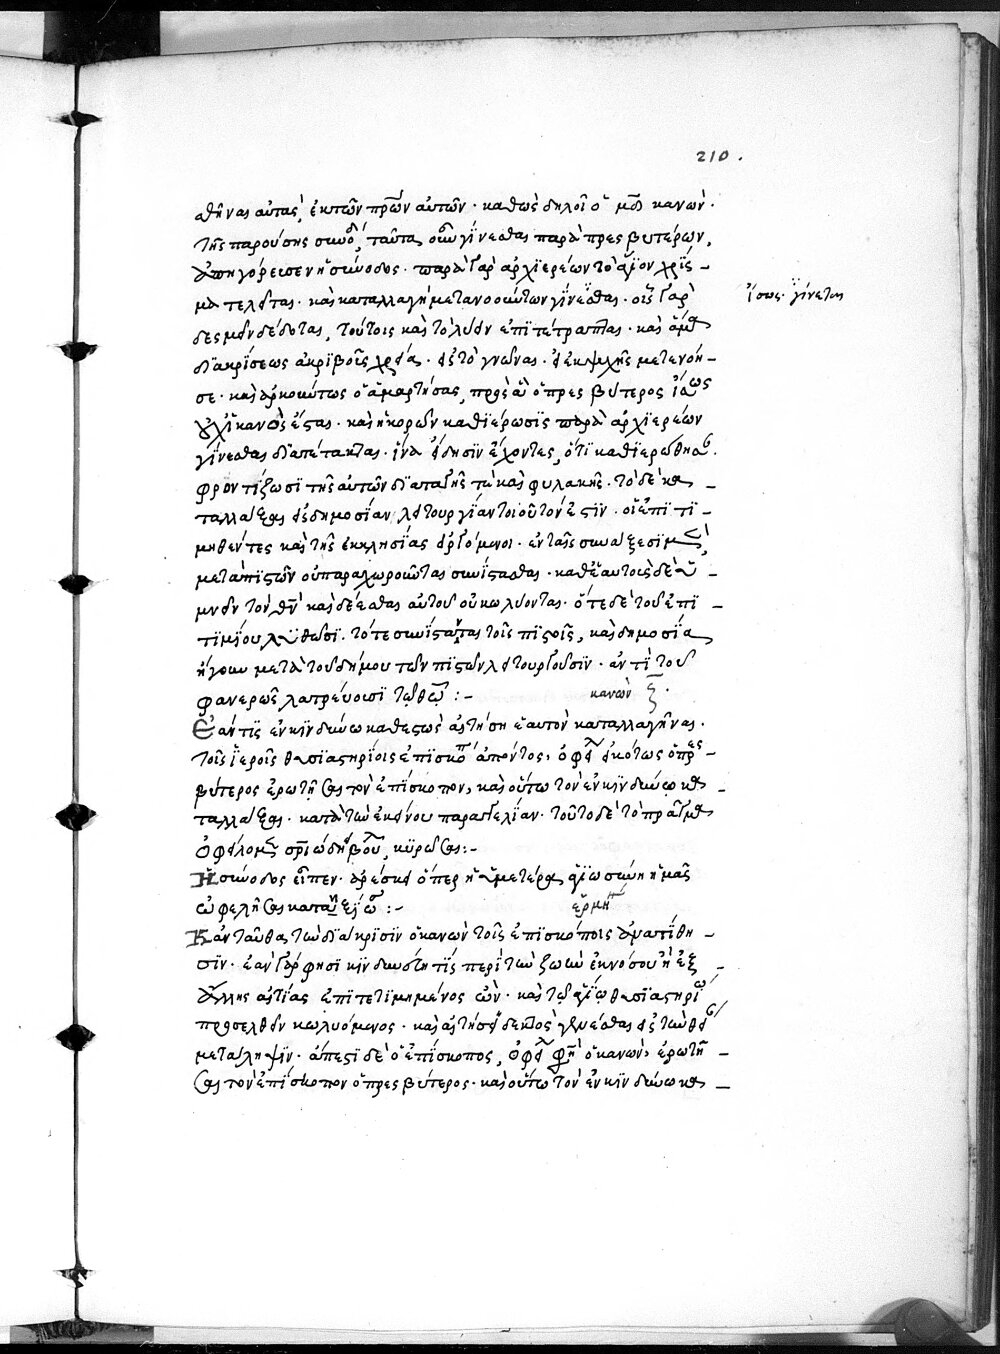 210.
θῆναι αὐτὰς, ἐκ τῶν πρων αὐτῶν· καθὼς δηλοῖ ὁ μδ κανών·
τῆς παρούσης συνόδ, ταῦτα οὖν γίνεσθαι παρὰ πρεσβυτέρων,
ἀπηγόρευσεν ἡ σύνοδος· παρὰ γὰρ ἀρχιερέων τὸ ἅγιον χρίσ-
μα τελεῖται· καὶ καταλλαγὴ μετανοούντων γίνεσθαι· οἷς γὰρ
ἴσως· γίνεται
δεσμεῖν δέδοται, τούτοις καὶ τὸ λύειν ἐπιτέτραπται· καὶ ἅμα
διακρίσεως ἀκριβοῦς χρεία· εἰς τὸ γνῶναι· εἰ ἐκ ψυχῆς μετενόη-
σε· καὶ ἀρκούντως ὁ ἁμαρτήσας, πρὸς ἃ ὁ πρεσβύτερος ἴσως
οὐχ ἱκανὸς ἔσται· καὶ ἡ κορῶν καθιέρωσις παρὰ ἀρχιερέων
γίνεσθαι διαπέτακται· ἵνα εἴδησιν ἔχοντες, ὅτι καθιερώθησ·
φροντίζωσι τῆς αὐτῶν διαπαγῆς τὲ καὶ φυλακῆς· τὸ δὲ κα-
ταλλάξαι εἰς δημοσίαν λειτουργίαν τοιοῦτον ἐστὶν· οἱ ἐπιτι-
μηθέντες καὶ τῆς ἐκκλησίας εἰργόμενοι· ἐν ταῖς συνάξεσι
μετὰ πιστῶν οὐ παραχωροῦνται συνίστασθαι· καθ' ἑαυτοὺς δὲ ὑ-
μνεῖν τὸν θν καὶ δέεσθαι αὐτοῦ οὐ κωλύονται· ὅτε δὲ τοῦ ἐπι-
τιμίου λυθῶσι· τότε συνίστανται τοῖς πιστοῖς, καὶ δημοσία
ἤγουν μετὰ τοῦ δήμου τῶν πιστῶν λειτουργοῦσιν· ἀντὶ τοῦ
φανερῶς λατρεύουσι τῷ θῷ :- κανὼν ζ·
Ἐάν τις ἐν κινδύνω καθεστὼς αἰτήση ἑαυτὸν καταλλαγῆναι·
τοῖς ἱεροῖς θυσιαστηρίοις ἐπισκόπ ἀπόντος, ὀφεί εἰκότως ὁ πρεσ-
βύτερος ἐρωτῆσαι τὸν ἐπίσκοπον, καὶ οὕτω τὸν ἐν κινδύνω κα-
ταλλάξαι· κατὰ τὴν ἐκείνου παραγγελίαν· τοῦτο δὲ τὸ πρᾶγμα
ὀφείλομ βοῦ, κυρῶσαι:-
Ἡ σύνοδος εἶπεν· ἀρέσκει ὅπερ ἡ ὑμετέρα ἁγιωσύνη ἡμᾶς
ὠφελῆσαι κατ :- ἑρμη
Κἀνταῦθα τὴν διάκρισιν ὁ κανὼν τοῖς ἐπισκόποις ἀνατίθη-
σιν· ἐὰν γάρ φησι κινδυνεύη τὶς περὶ τὴν ζωὴν ἐκ νόσου ἢ ἐξ
ἄλλης αἰτίας ἐπιτετιμημένος ὢν· καὶ τῷ ἁγίῳ θυσιαστηρίω
προσελθεῖν κωλυόμενος· καὶ αἰτήσει δεκτὸς γενέσθαι εἰς τὴν θεί
μετάληψιν· ἄπεστι δὲ ὁ ἐπίσκοπος, ὀφεί φη ὁ κανών, ἐρωτῆ-
σαι τὸν ἐπίσκοπον ὁ πρεσβύτερος· καὶ οὕτω τὸν ἐν κινδύνω κα-